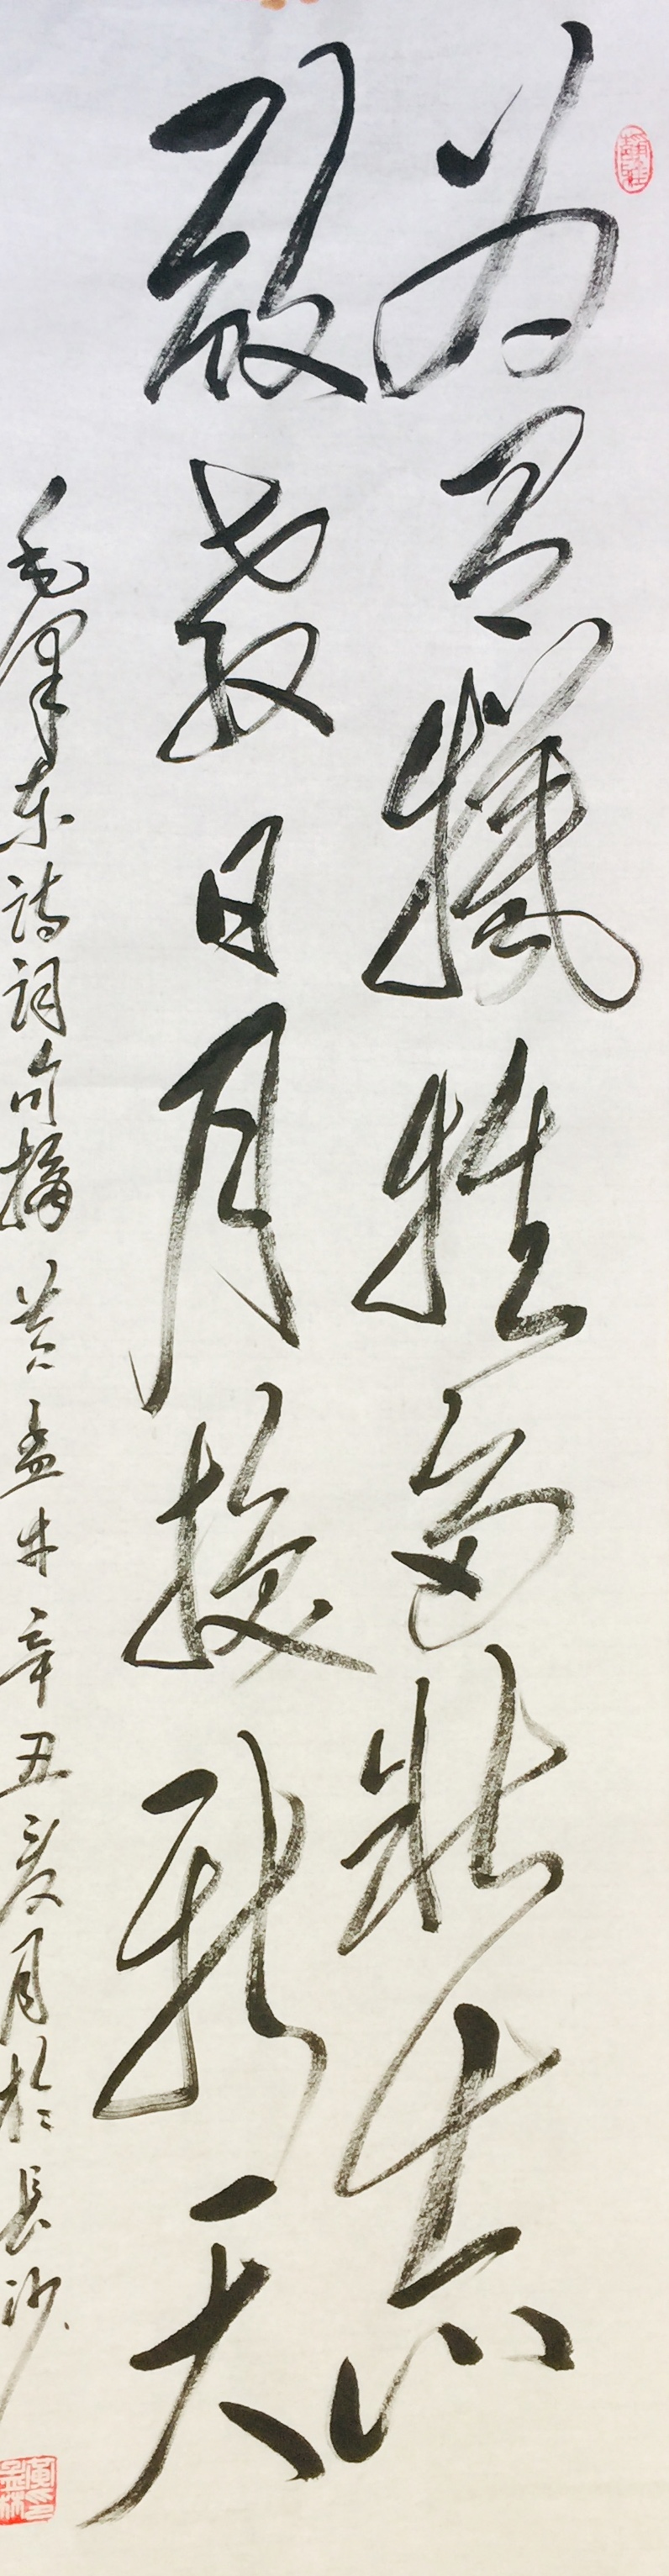 为有犧牲多壮志
敢教日月换新天
毛泽东诗词句摘 黄孟林 辛丑夏月於長沙